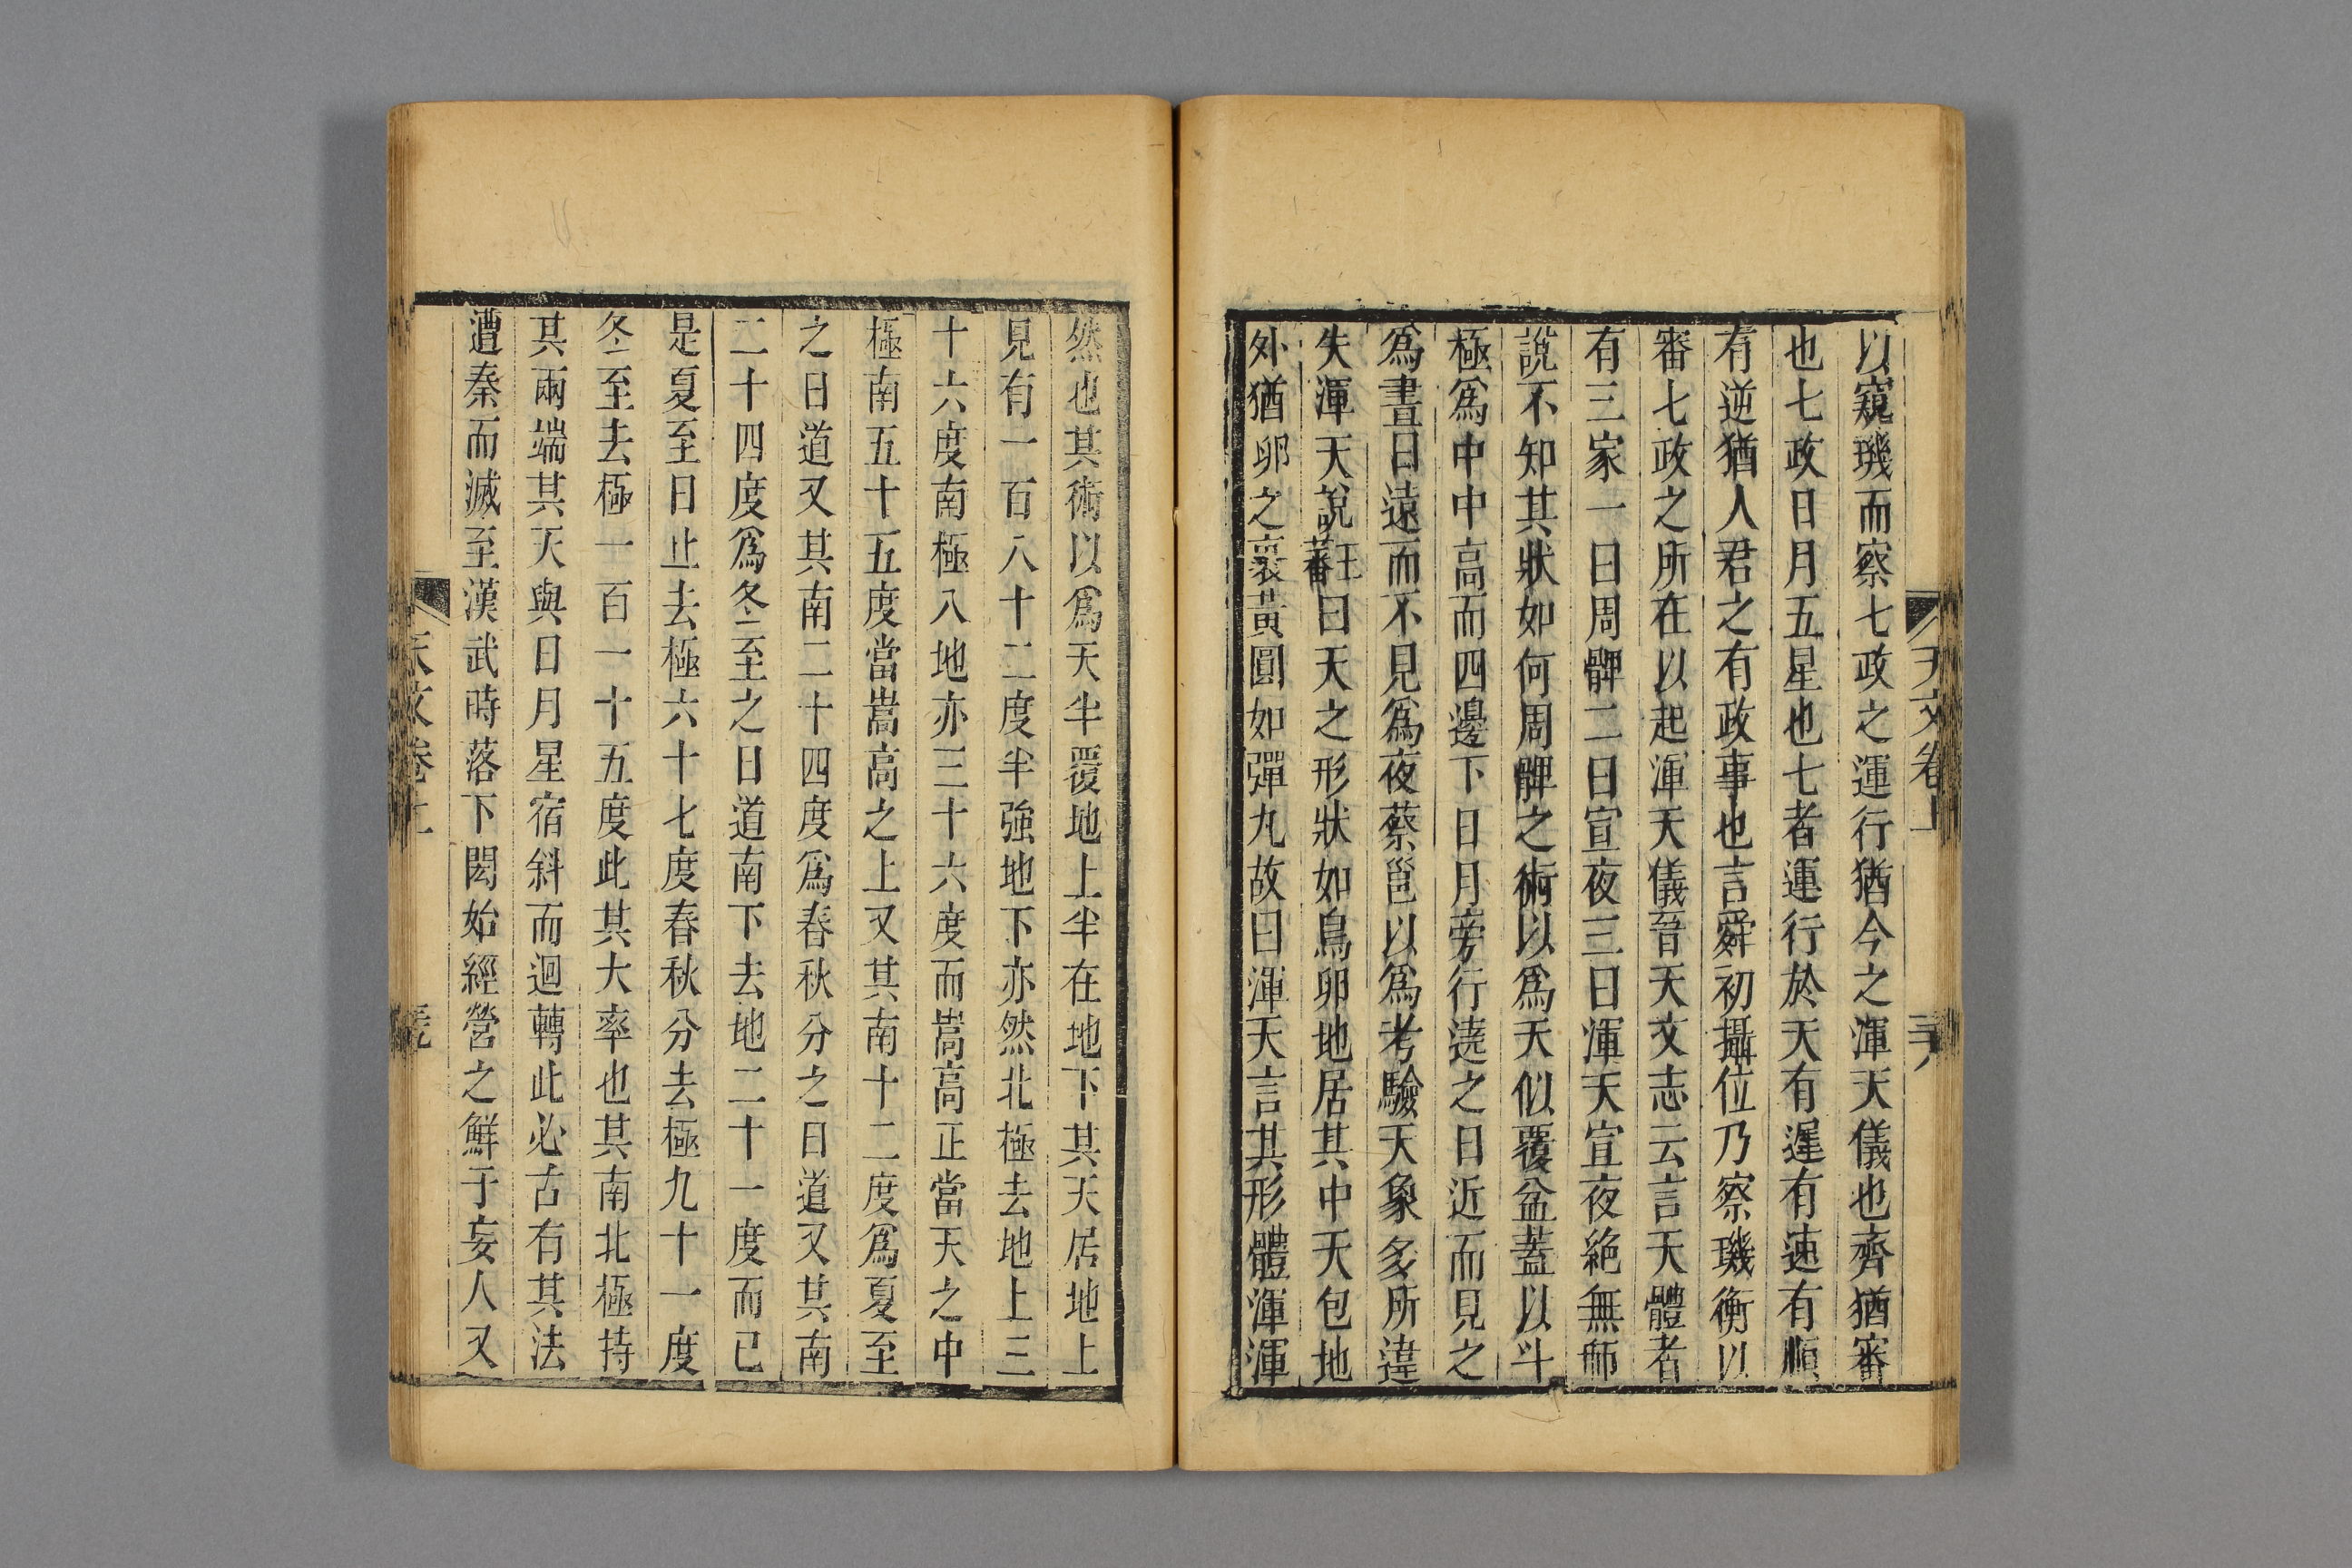 以窺璣而察七政之運行猶今之渾天儀也齊猶審
也七政日月五星也七者運行於天有遲有速有順
有逆猶人君之有政事也言舜初攝位乃察璣衡以
審七政之所在以起渾天儀晉天文志云言天體者
有三家一曰周髀二曰宣夜三曰渾天宣夜絶無師
說不知其狀如何周髀之術以爲天似覆盆蓋以斗
極爲中中高而四邊下日月旁行遶之日近而見之
爲晝日遠而不見爲夜蔡邕以爲考驗天象多所違
失渾天說王蕃曰天之形狀如鳥卵地居其中天包地
外猶卵之裹黃圓如彈九故曰渾天言其形體渾渾
天文卷上
三十八
然也其術以爲天半覆地上半在地下其天居地上
見有一百八十二度半強地下亦然北極去地上三
十六度南極入地亦三十六度而嵩高正當天之中
極南五十五度當嵩高之上又其南十二度爲夏至
之日道又其南二十四度爲春秋分之日道又其南
二十四度爲冬至之日道南下去地二十一度而已
是夏至日止去極六十七度春秋分去極九十一度
冬至去極一百一十五度此其大率也其南北極持
其兩端其天與日月星宿斜而迴轉此必古有其法
遭秦而滅至漢武時落下閎始經營之鮮于妄人又
天文卷上